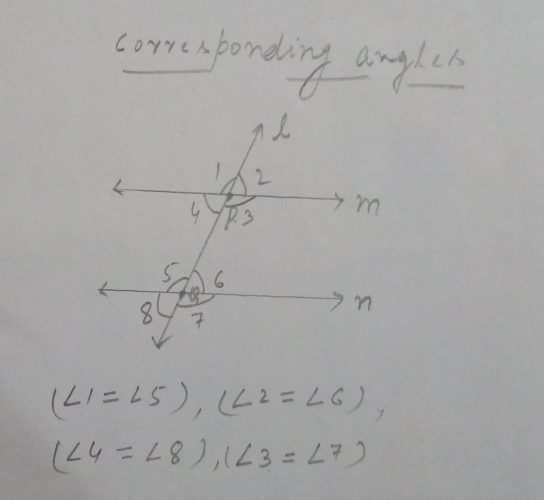 corresponding angles
l
1 2
m
4 P 3
5 6
Q
n
8 7
(∠1 = ∠5), (∠2 = ∠6),
(∠4 = ∠8), (∠3 = ∠7)